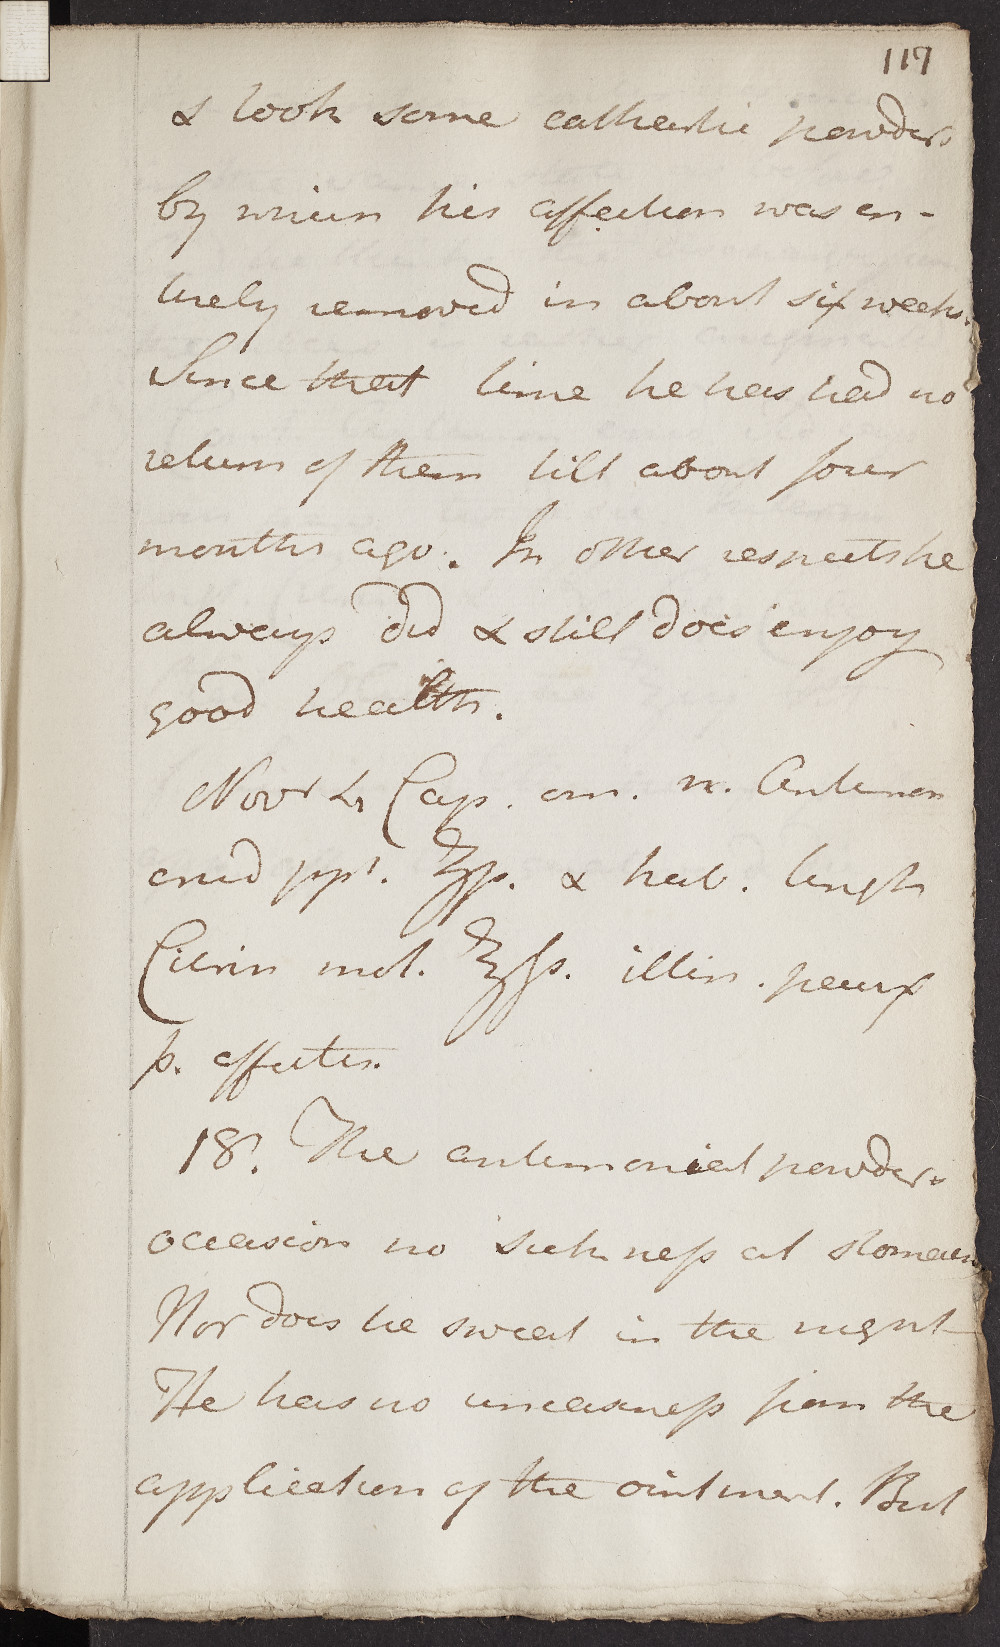 117
& took some cathartic powders
by which his affection was en-
tirely removed in about six weeks.
Since that time he has had no
return of them till about four
months ago. In other respects he
always did & still does enjoy
good health.
Novr Cap. om. n. Antimon
crud ppt. ʒſs. & hab. Ungti
Citrin mol. ℥ſs. illin. paux
p. affectis.
18. The antimonial powders
occasion no sickness at stomach
Nor does he sweat in the night
He has no uneasiness from the
application of the ointment. But